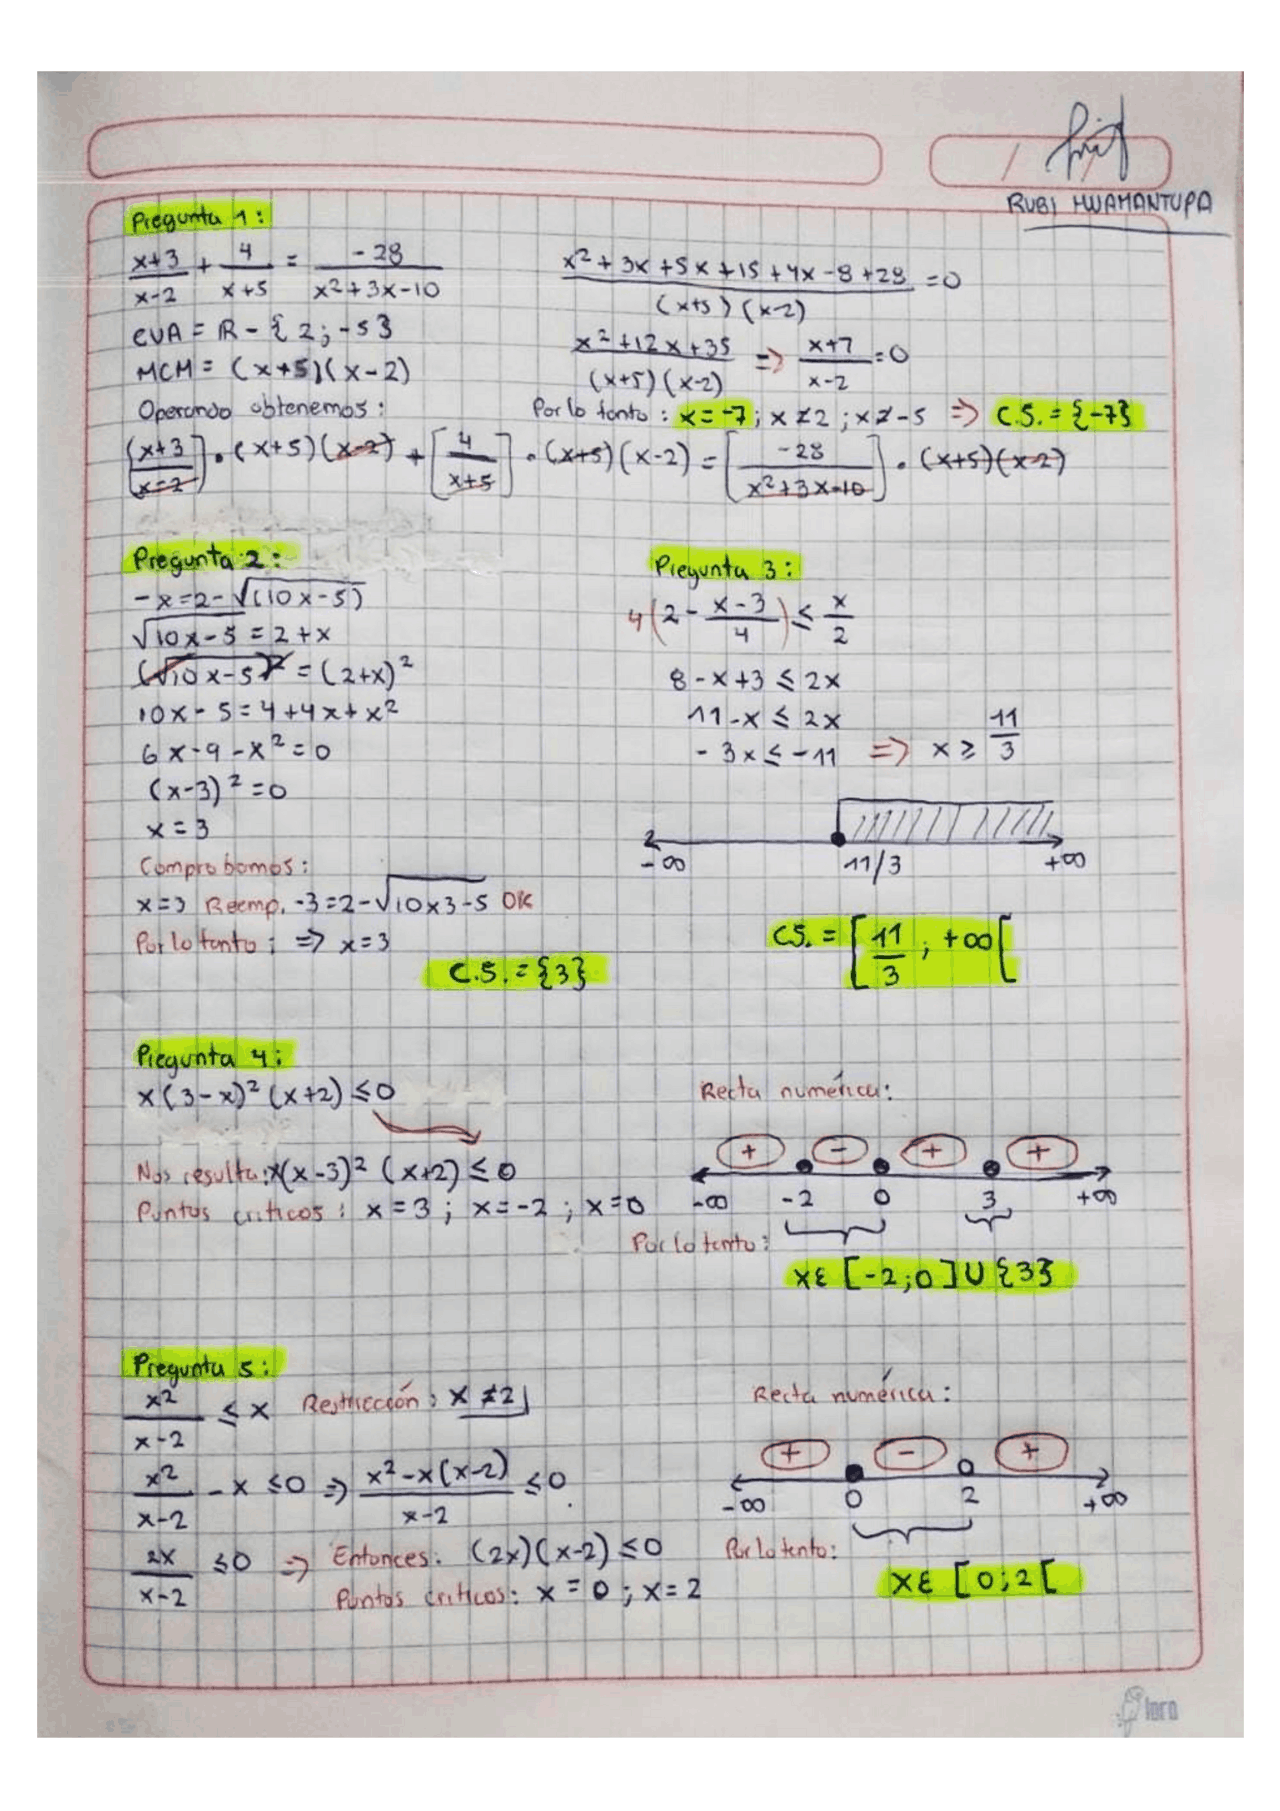 RUBI HUAMANTUPA
Pregunta 1:
x+3/x-2 + 4/x+5 = -28/x²+3x-10
CVA = R - {2; -5}
MCM = (x+5)(x-2)
Operando obtenemos:
[x+3/x-2] · (x+5)(x-2) + [4/x+5] · (x+5)(x-2) = [-28/x²+3x-10] · (x+5)(x-2)
x²+3x+5x+15+4x-8+28/(x+5)(x-2) = 0
x²+12x+35/(x+5)(x-2) => x+7/x-2 = 0
Por lo tanto: x=-7; x≠2; x≠-5 => C.S. = {-7}
Pregunta 2:
-x=2-√(10x-5)
√10x-5 = 2+x
(√10x-5)² = (2+x)²
10x-5=4+4x+x²
6x-9-x²=0
(x-3)²=0
x=3
Comprobamos:
x=3 Reemp. -3=2-√10x3-5 OK
Por lo tanto: => x=3
C.S. = {3}
Pregunta 3:
4(2 - x-3/4) ≤ x/2
8-x+3 ≤ 2x
11-x ≤ 2x
-3x ≤ -11 => x ≥ 11/3
-∞ 11/3 +∞
CS. = [11/3; +∞[
Pregunta 4:
x(3-x)²(x+2) ≤ 0
Nos resulta: x(x-3)² (x+2) ≤ 0
Puntos críticos: x=3; x=-2; x=0
Recta numérica:
+ - + +
-∞ -2 0 3 +∞
Por lo tanto:
xε [-2;0] U {3}
Pregunta 5:
x²/x-2 ≤ x Restricción: x ≠ 2
x²/x-2 - x ≤ 0 => x²-x(x-2)/x-2 ≤ 0
2x/x-2 ≤ 0 => Entonces: (2x)(x-2) ≤ 0
Puntos críticos: x=0; x=2
Recta numérica:
+ - +
-∞ 0 2 +∞
Por lo tanto:
xε [0;2[
loro